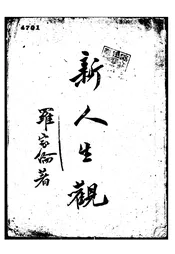 4701
新人生觀
羅家倫著